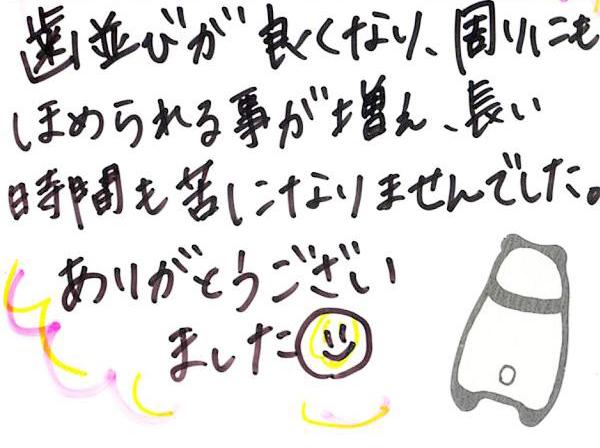 歯並びが良くなり、周りにも
ほめられる事が増え、長い
時間も苦になりませんでした。
ありがとうござい
ました